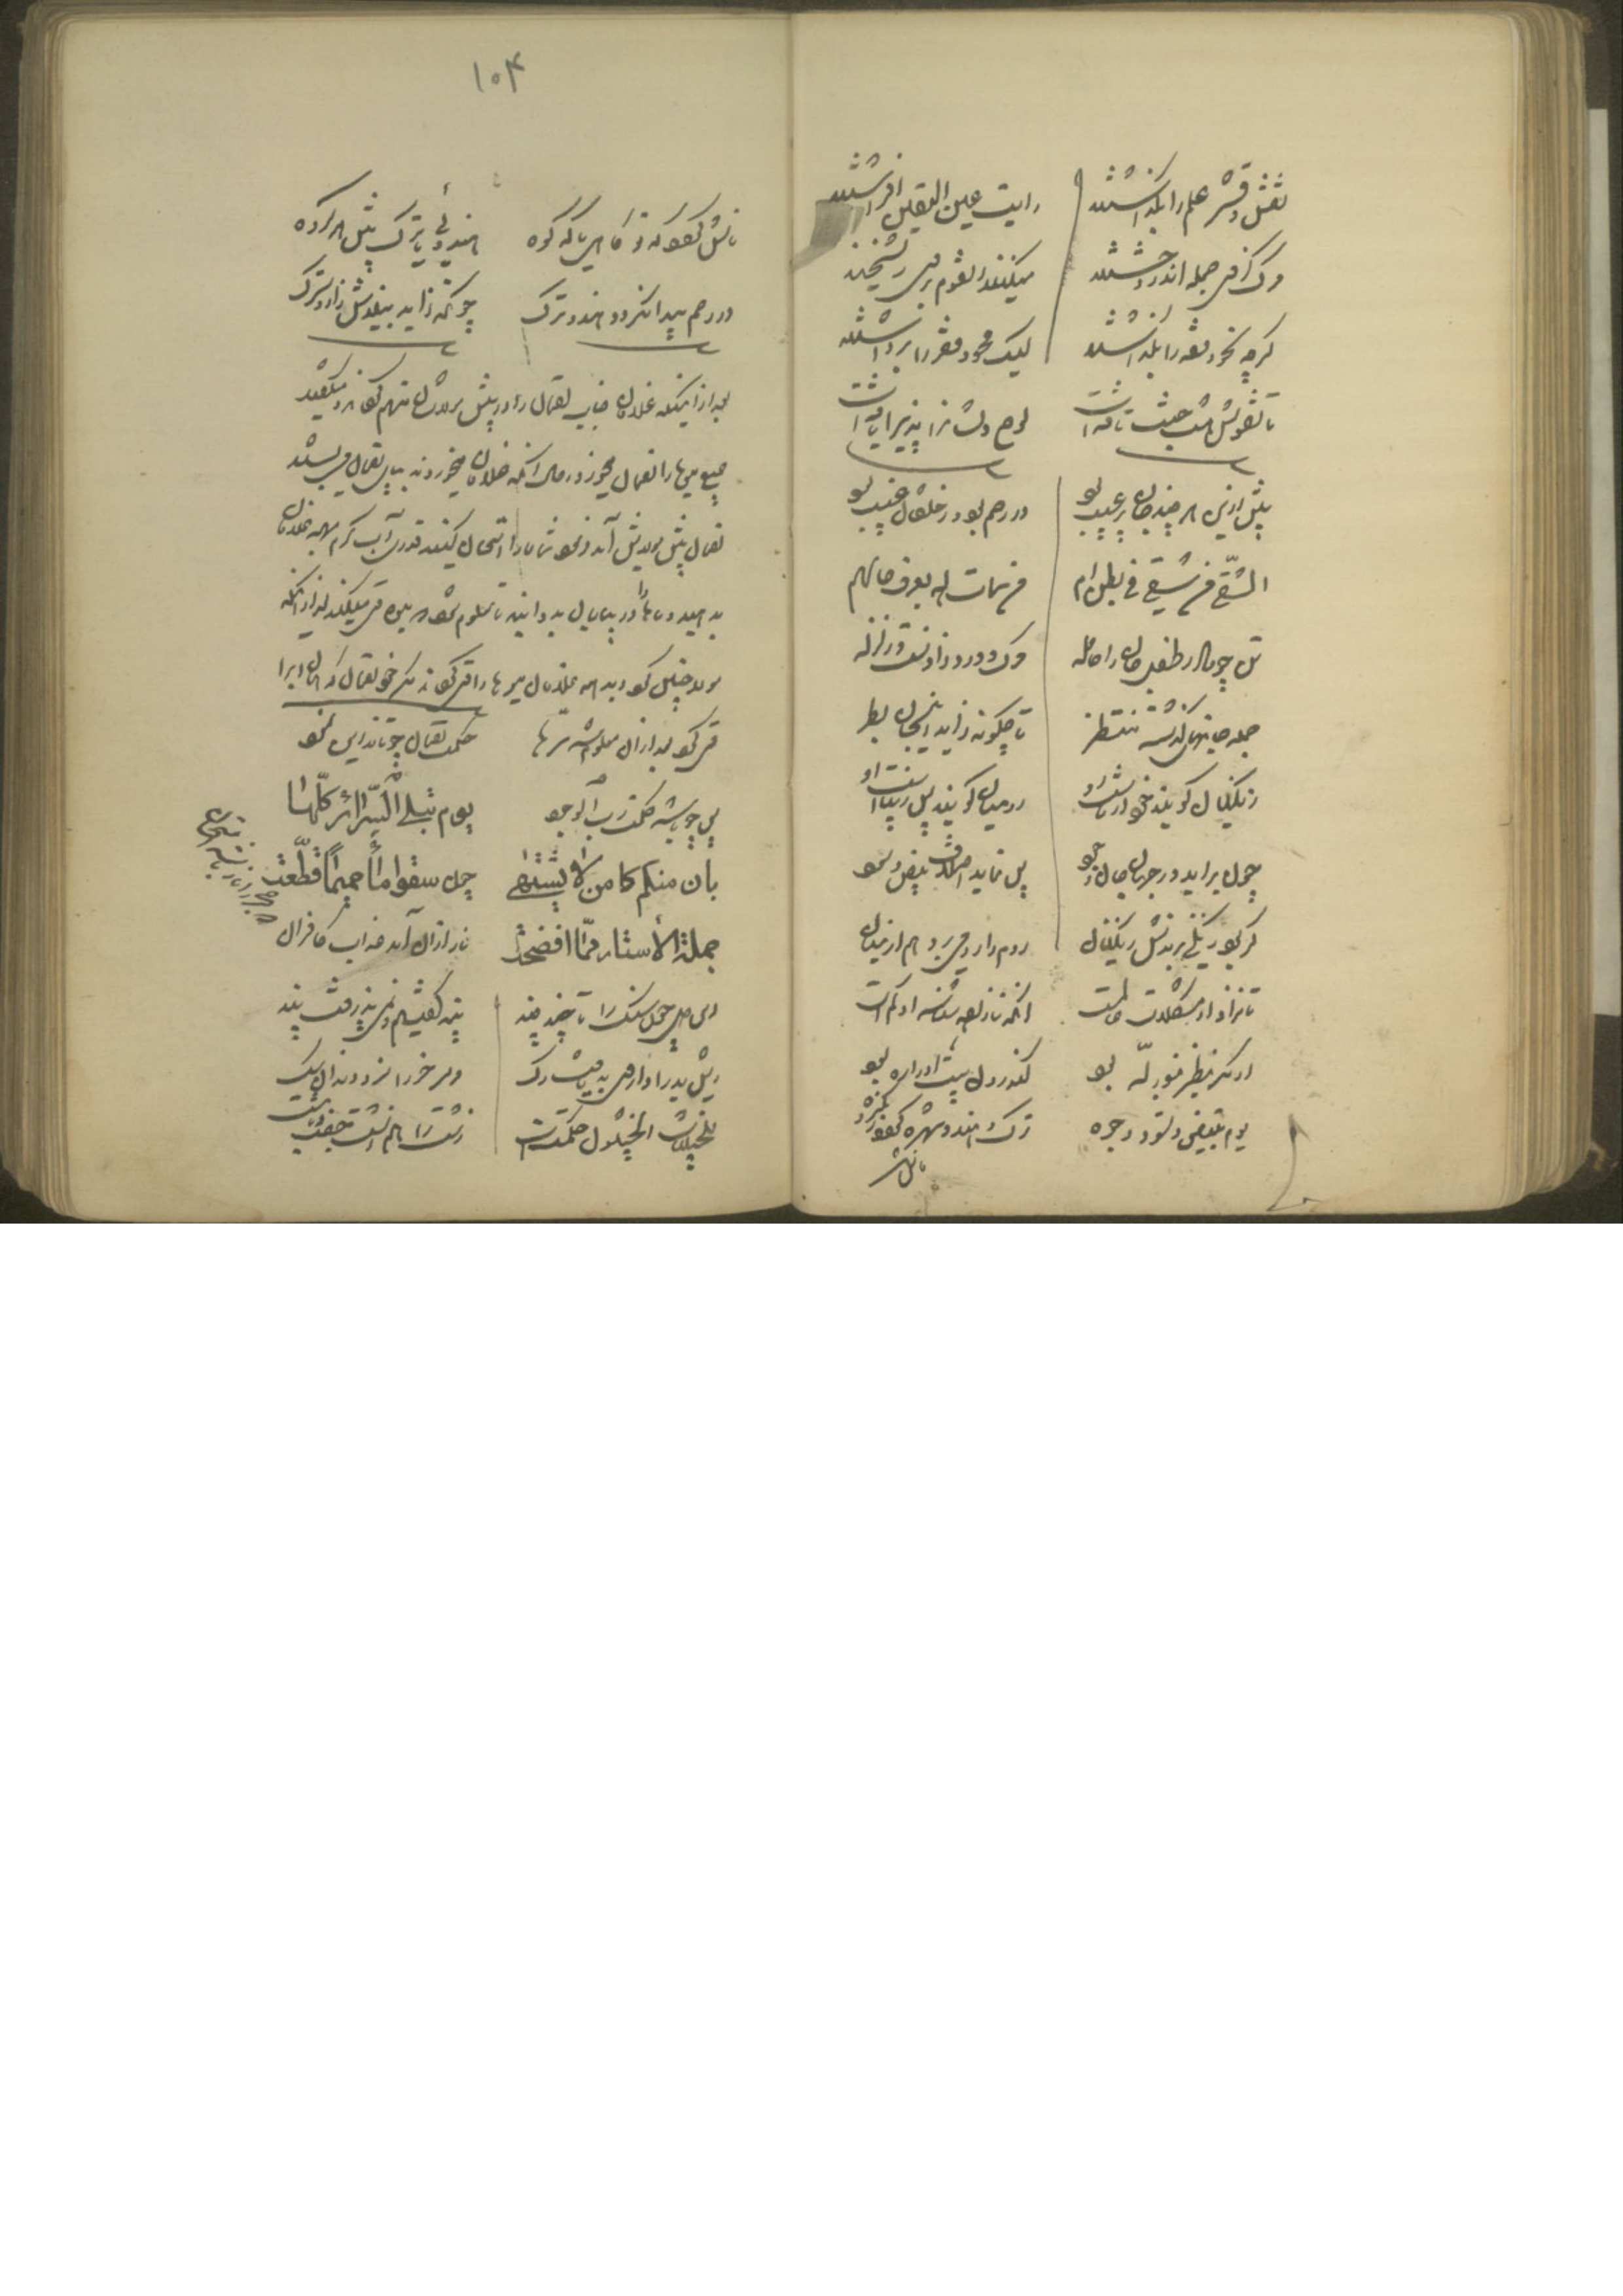 نقش و قشر علم را بگذاشتند رایت عین الیقین افراشتند
مرگ کزوی جمله اندر وحشتند میکنند این قوم بر وی ریشخند
گرچه نحو و فقه را بگذاشتند لیک محو و فقر را برداشتند
تا نقوش هشت جنت تافتست لوح دلشانرا پذیرا یافتست
پیش ازین هر چند جان پر عیب بود در رحم بود و ز خلقان غیب بود
الشقی من شقی فی بطن ام من سمات الله یعرف حالهم
تن چو مادر طفل جان را حامله مرگ درد زادنست و زلزله
جمله جانهای گذشته منتظر تا چگونه زاید آن جان بطر
زنگیان گویند خود از ماست او رومیان گویند بس زیباست او
چون بزاید در جهان جان و جود پس نماند اختلاف بیض و سود
گر بود زنگی برندش زنگیان روم را رومی برد هم از میان
تا نزاد او مشکلات عالمست آنکه نازاده شناسد او کمست
او مگر ینظر بنور الله بود کاندرون پوست او را ره بود
یوم تبیض و تسود وجوه ترک و هندو شهره گردد زان گروه
فاش
۱۰۴
فاش گردد که تو کاهی یا که کوه هندوئی یا ترک پیش هر گروه
در رحم پیدا نگردد هندو ترک چونکه زاید بیندش زار و سترگ
بعد از اینکه غلامان جناب لقمان را در پیش مولاشان متهم کردند و میگفتند
جمیع میوه‌ها را لقمان میخورد و حال آنکه غلامان میخوردند بپای لقمان می‌بستند
لقمان پیش مولایش آمد و فرمود شما ما را امتحان کنید قدری آب گرم بهمه غلامان
بدهید و ماها را در بیابان بدوانید تا معلوم شود هر میوه قی میکنند بعد از آنکه
مولا چنین کرد و دید همه غلامان میوه‌ها را قی کردند مگر خود لقمان که آن آب را
قی کرد بعد از آن معلوم شد سرها حکمت لقمان چو تاند این نمود
پس چه باشد حکمت رب الوجود یوم تبلی السرائر کلها
بان منکم کامن لا یشتهی چون سقوا ماء حمیما قطعت
جملة الأستار مما افضحت نار از آن آمد عذاب کافران
که حجر را نار باشد امتحان
این دل چون سنگ را تا چند چند پند گفتیم و نمی‌پذرفت پند
ریش بد را داروی بد یافت رگ مر سر خر را سزد دندان سگ
الخبیثات للخبیثین حکمتست زشت را هم زشت جفت بابتست